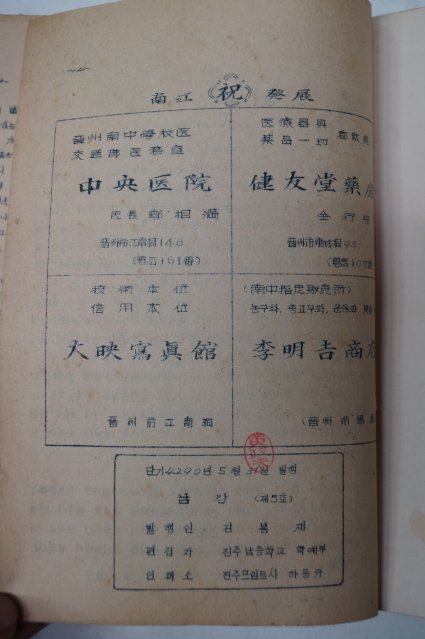 南江 祝 発展
晋州南中學校医
交通部医務室
中央医院
院長 鄭相
晋州市江南洞146
(電話161番)
医療器具
薬品一切
健友堂薬
金行
晋州市
93
(電話107
技術本位
信用本位
大映寫眞館
晋州市江南洞
(南中指定販売所)
농구화, 운동화
李明吉商
(晋州市
단기4290년 5월 31일 발행
남강 (제5호)
발행인 김봉재
편집자 진주남중학교 학예부
인쇄소 진주프린트사 하동규